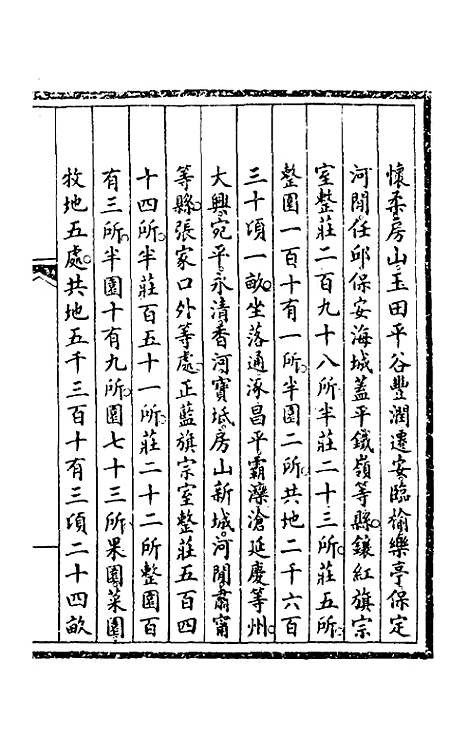 懷柔房山玉田平谷豐潤遷安臨榆樂亭保定
河間任邱保安海城蓋平鐵嶺等縣鑲紅旗宗
室整莊二百九十八所半莊二十三所莊五所
整園一百十有一所半園二所共地二千六百
三十頃一畝坐落通涿昌平霸灤滄延慶等州
大興宛平永清香河寶坻房山新城河間肅甯
等縣張家口外等處正藍旗宗室整莊五百四
十四所半莊百五十一所莊二十二所整園百
有三所半園十有九所園七十三所果園菜園
牧地五處共地五千三百十有三頃二十四畝